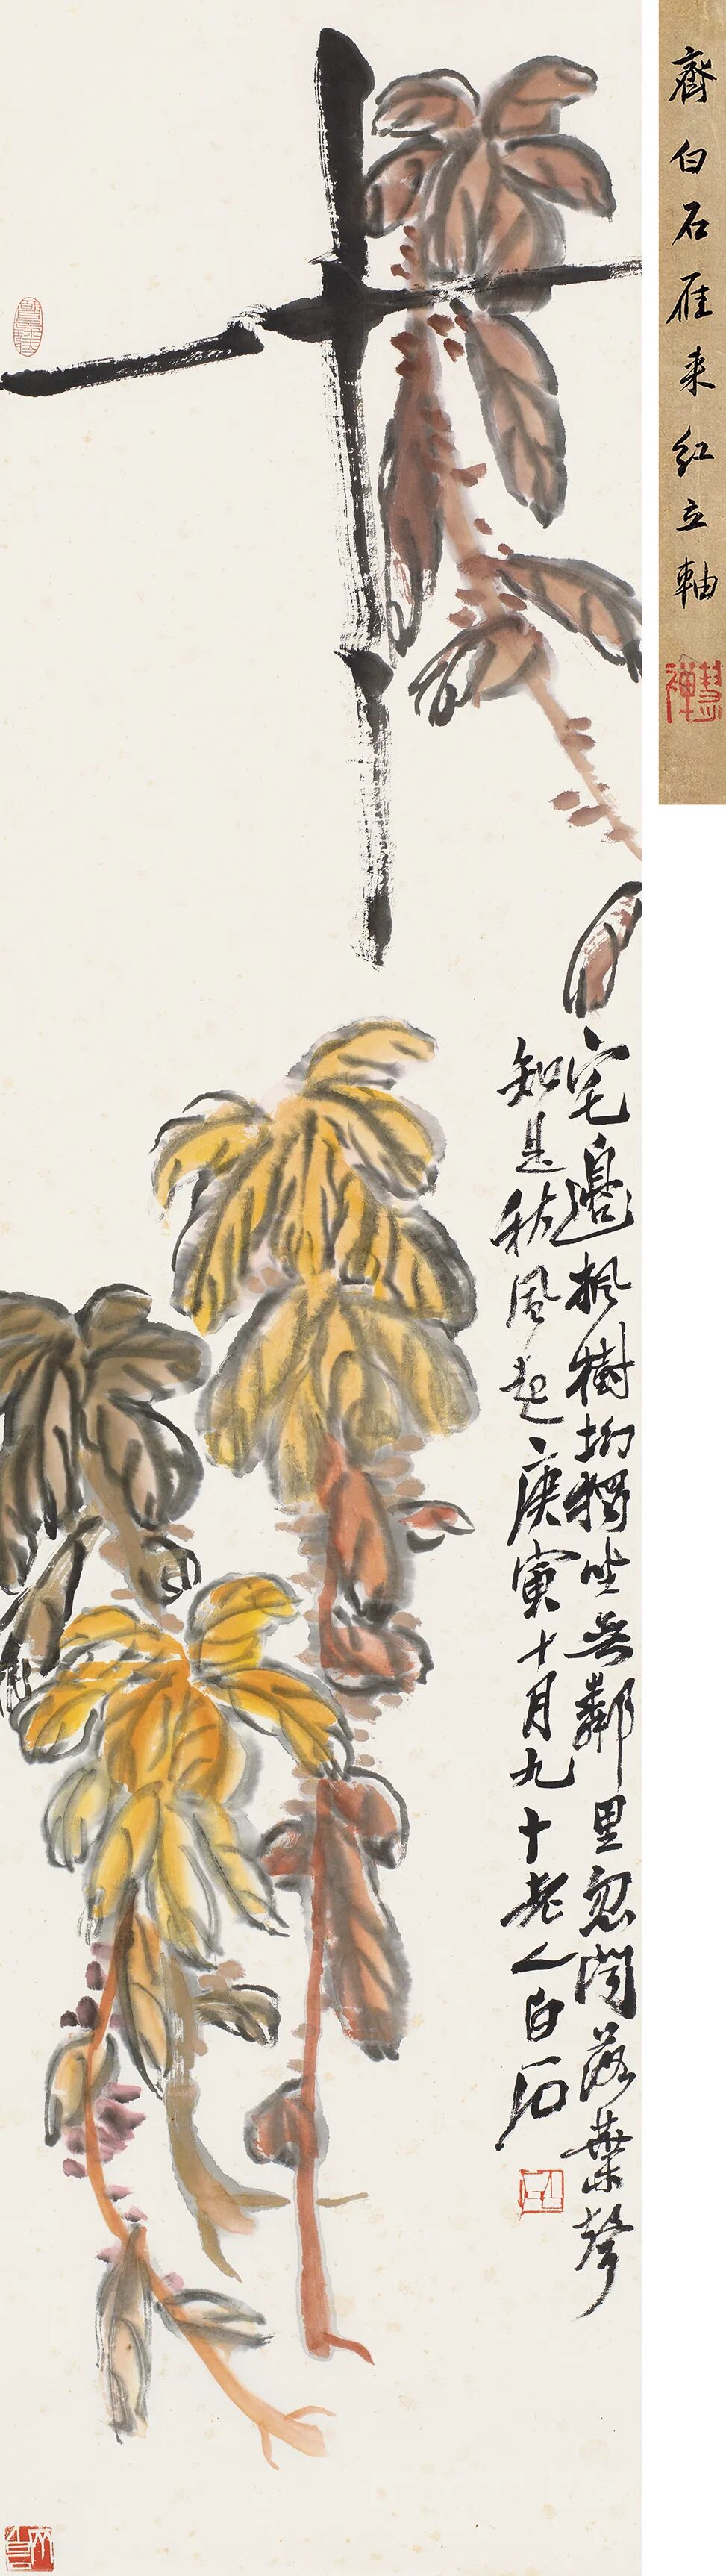 齊白石雁来紅立軸
宅邊楓樹坳獨坐無鄰里忽聞落葉聲
知是秋風起庚寅十月九十老人白石